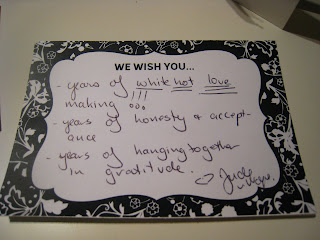 WE WISH YOU...
- years of white hot love
!!!
making ooo
- years of honesty & accept-
ance
- years of hanging together
in gratitude.
Jude